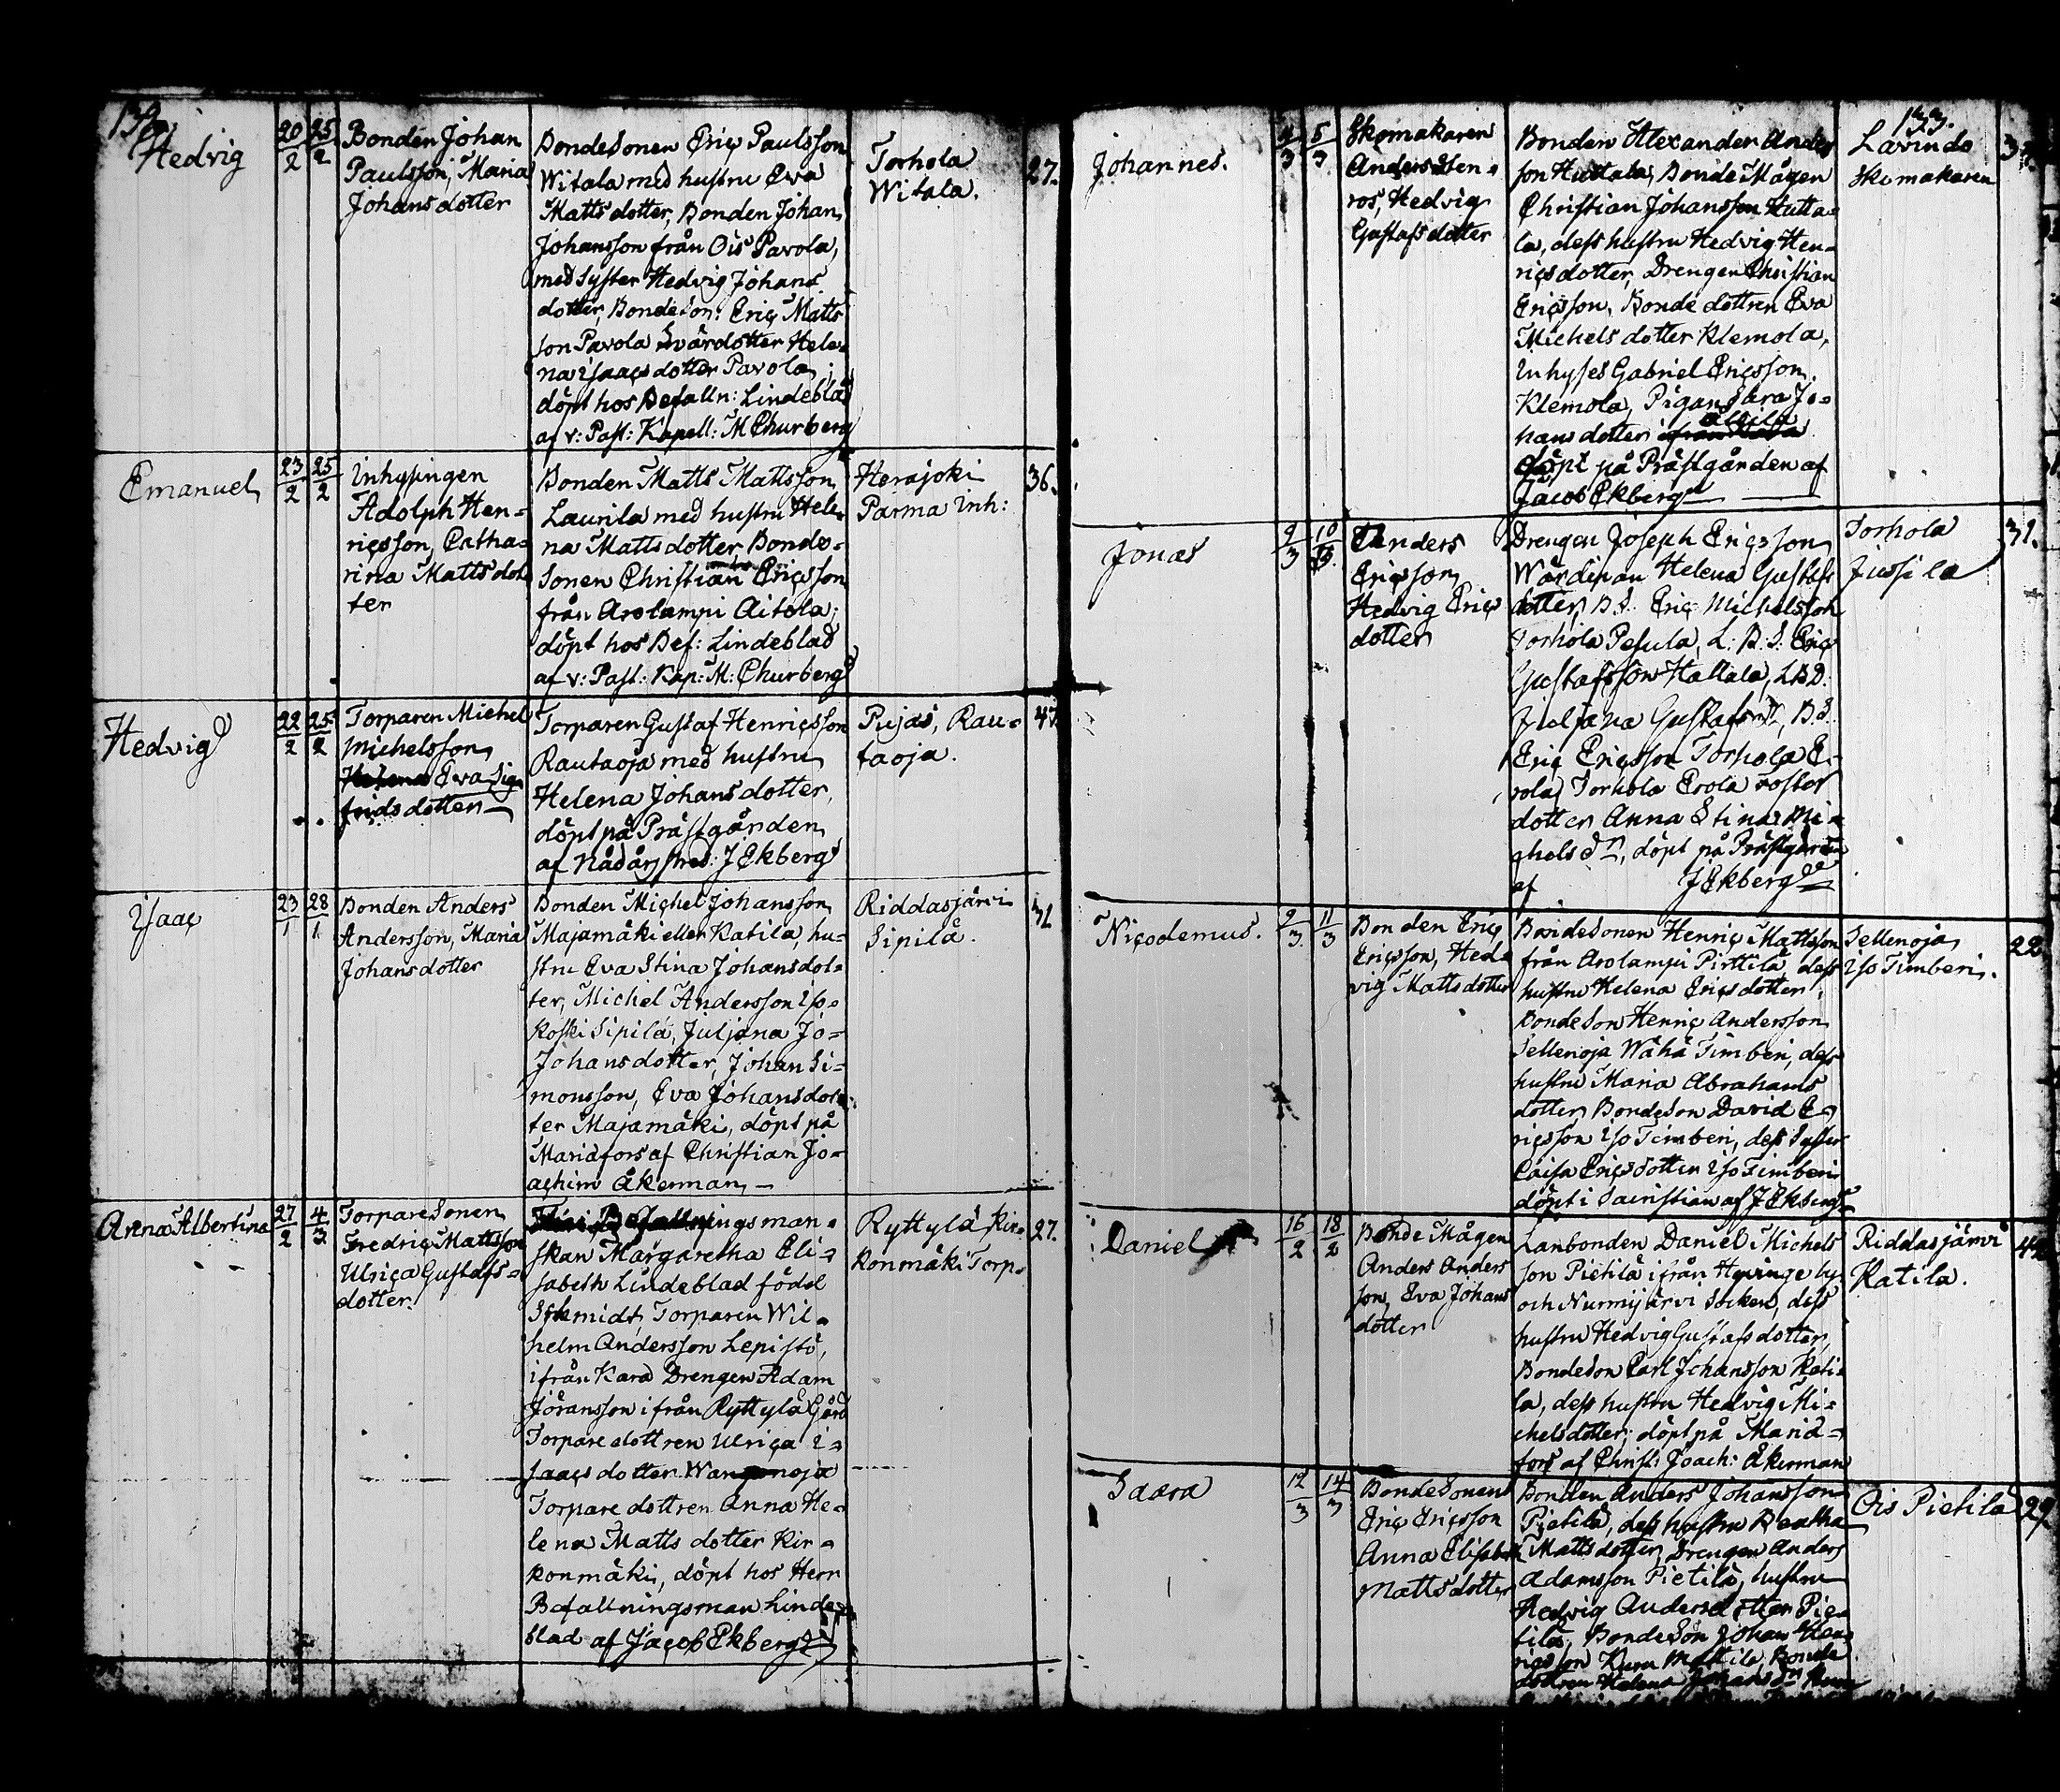 Hedvig
20/2 25/2
Bonden Johan
Paulsson, Maria
Johansdotter
Bondesonen Eriç Paulsson
Witala med hustru Eva
Mattsdotter, Bonden Johan
Johansson från Ois Pavola,
med syster Hedvig Johans
dotter, Bondeson: Eriç Matts
son Pavola Svärdotter Hele-
na Isaaçsdotter Pavola;
döpt hos Befalln: Lindeblad
af v: Past: Kapell: M Churberg
Torhola
Witala.
27.
Emanuel
23/2 25/2
Inhysingen
Adolph Hen-
riçsson, Catha-
rina Matts dot
ter
Bonden Matts Mattsson
Laurila med hustru Hele-
na Mattsdotter, Bonde-
Sonen Christian Eriçsson
från Arolampi Aitola;
döpt hos Bef: Lindeblad
af v: Past: Kap: M: Churberg
Herajoki
Parma Inh:
36.
Hedvig
22/2 25/2
Torparen Michel
Michelsson
Eva Sig
fridsdotter
Torparen Gustaf Henriçsson
Rautaoja med hustru
Helena Johansdotter,
döpt på Prästgården
af Nådårspred: J Ekberg
Pujas, Rau-
taoja.
47
Isaaç
23/1 28/1
Bonden Anders
Andersson, Maria
Johansdotter
Bonden Michel Johansson
Majamäki eller Katila, hu-
stru Eva Stina Johansdot-
ter, Michel Andersson Iso-
koski Sipilä, Juljana Jo-
Johansdotter, Johan Si-
monsson, Eva Johansdot-
ter Majamäki, döpt på
Mariæfors af Christian Jo-
açhim Åkerman
Riddasjärvi
Sipilä.
31
Anna Albertina
27/2 4/3
Torparesonen
Fredriç Mattsson
Ulriça Gustafs-
dotter.
Befallningsman-
skan Margaretha Eli-
sabeth Lindeblad född
Schmidt, Torparen Wil-
helm Andersson Lepistö,
ifrån Kara Drengen Adam
Jöransson ifrån Ryttylä Gård
Torparedottren Ulriça I-
saaçs dotter
Torparedottren Anna He-
lena Matts dotter Kir-
konmäki, döpt hos Herr
Befallningsman Linde-
blad af Jaçob Ekberg
Ryttylä Kir-
konmäki Torp.
27.
133.
Johannes.
4/3 5/3
Skomakaren
Anders Sten-
ros, Hedvig
Gustafsdotter
Bonden Alexander Anders
son Huttala, Bonde Mågen
Christian Johansson Hutta-
la, dess hustru Hedvig Hen-
riçsdotter, Drengen Christian
Eriçsson, Bondedottren Eva
Michelsdotter Klemola,
Inhyses Gabriel Eriçsson
Klemola, Pigan Sara Jo-
hansdotter
döpt på Prästgården af
Jacob Ekberg
Lavinto
Skomakaren
Jonas
9/3 10/3
Anders
Eriçsson
Hedvig Eriçs
dotter
Drengen Joseph Ericsson
Wärdinnan Helena Gustafs
dotter, B.S. Eriç Michelsson
Torhola Pesula, L: B: S: Eriç
Gustafsson Hattala, LBD.
Juljana Gustafsdr, B.S.
Eriç Ericsson Torhola E-
rola, Torhola Erola
dotter Anna Stina Mi-
chelsdr, döpt på Prästgården
af J Ekberg
Torhola
Jussila
31.
Niçodemus.
9/3 11/3
Bonden Eriç
Eriçsson, Hed-
vig Mattsdotter
Bondesonen Henriç Mattsson
från Arolampi Pirttilä, dess
hustru Helena Eriçsdotter,
Bondeson Henriç Andersson
Sellenoja Wähä Timberi, dess
hustru Maria Abrahams
dotter, Bondeson David E-
riçsson Iso Timberi, dess syster
Caisa Eriçsdotter Iso Timberi
döpt i Sacristian af J Ekberg
Sellenoja
Iso Timberi.
22
Daniel
16/2 18/2
Bonde Mågen
Anders Anders
son, Eva Johans
dotter
Lanbonden Daniel Michels
son Pietilä ifrån Hyvinge by
och Nurmijärvi Socken, dess
hustru Hedvig Gustafsdotter,
Bondeson Carl Johansson Kati-
la, dess hustru Hedvig Mi-
chelsdotter; döpt på Mariæ-
fors af Christ: Joach: Åkerman
Riddasjärvi
Katila.
Saara
12/3 14/3
Bondesonen
Eriç Eriçsson
Anna Elisabeth
Mattsdotter
Bonden Anders Johansson
Pietilä, dess hustru Beatha
Mattsdotter, Drengen Anders
Adamsson Pietilä, hustru
Hedvig Andersdotter Pie-
tilä, Bondeson Johan Hen-
riçsson Mattila Bonde
dottren Helena Johansdr
Ois Pietilä
29